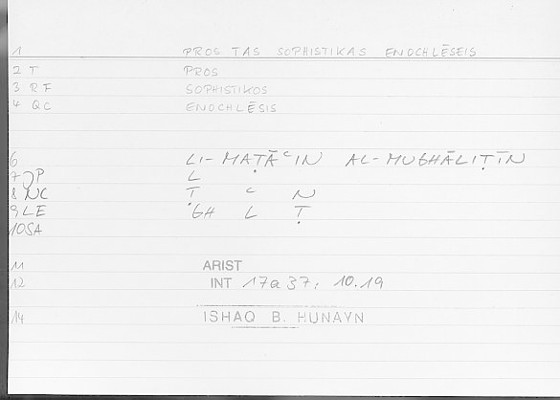 1 PROS TAS SOPHISTIKAS ENOCHLĒSEIS
2 T PROS
3 RF SOPHISTIKOS
4 QC ENOCHLĒSIS
6 LI-MAṬĀʿIN AL-MUGHĀLIṬĪN
7 P L
8 NC Ṭ ʿ N
9 LE GH L Ṭ
10SA
11 ARIST
12 INT 17a37; 10.19
14 ISHAQ B. HUNAYN